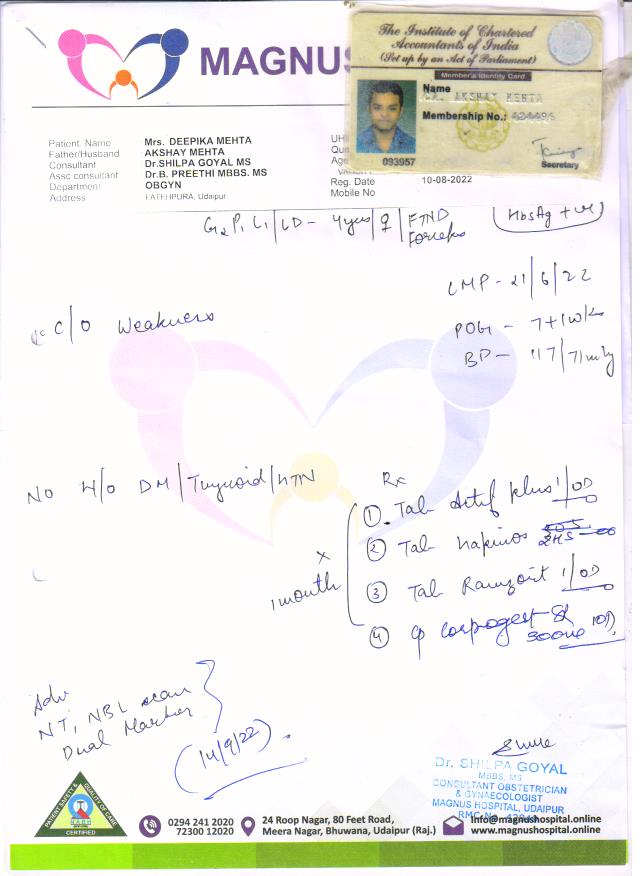 MAGNUS
The Institute of Chartered
Accountants of India
(Set up by an Act of Parliament)
Member's Identity Card
Name
AKSHAY MEHTA
Membership No.:
093957
Secretary
Patient. Name Mrs. DEEPIKA MEHTA
Father/Husband AKSHAY MEHTA
Consultant Dr.SHILPA GOYAL MS
Assc consultant Dr.B. PREETHI MBBS. MS
Department OBGYN
Address FATEHPURA, Udaipur
UH
Que
Age
Reg. Date 10-08-2022
Mobile No
G2P1L1/LD- 4yrs/♀/FTND
Forceps
(HbsAg +ve)
LMP - 21/6/22
C/O Weakness
POG - 7+1wks
BP - 117/71
No H/O DM/Thyroid/HTN
Rx
① Tab Plus 1/OD
② Tab
③ Tab 1/OD
④
x
1 month
Adv
NT, NBL scan
Dual Marker
(14/9/22).
Dr. SHILPA GOYAL
MBBS, MS
CONSULTANT OBSTETRICIAN
& GYNAECOLOGIST
MAGNUS HOSPITAL, UDAIPUR
RMC No.
PATIENT SAFETY & QUALITY OF CARE
CERTIFIED
0294 241 2020
72300 12020
24 Roop Nagar, 80 Feet Road,
Meera Nagar, Bhuwana, Udaipur (Raj.)
Info@magnushospital.online
www.magnushospital.online